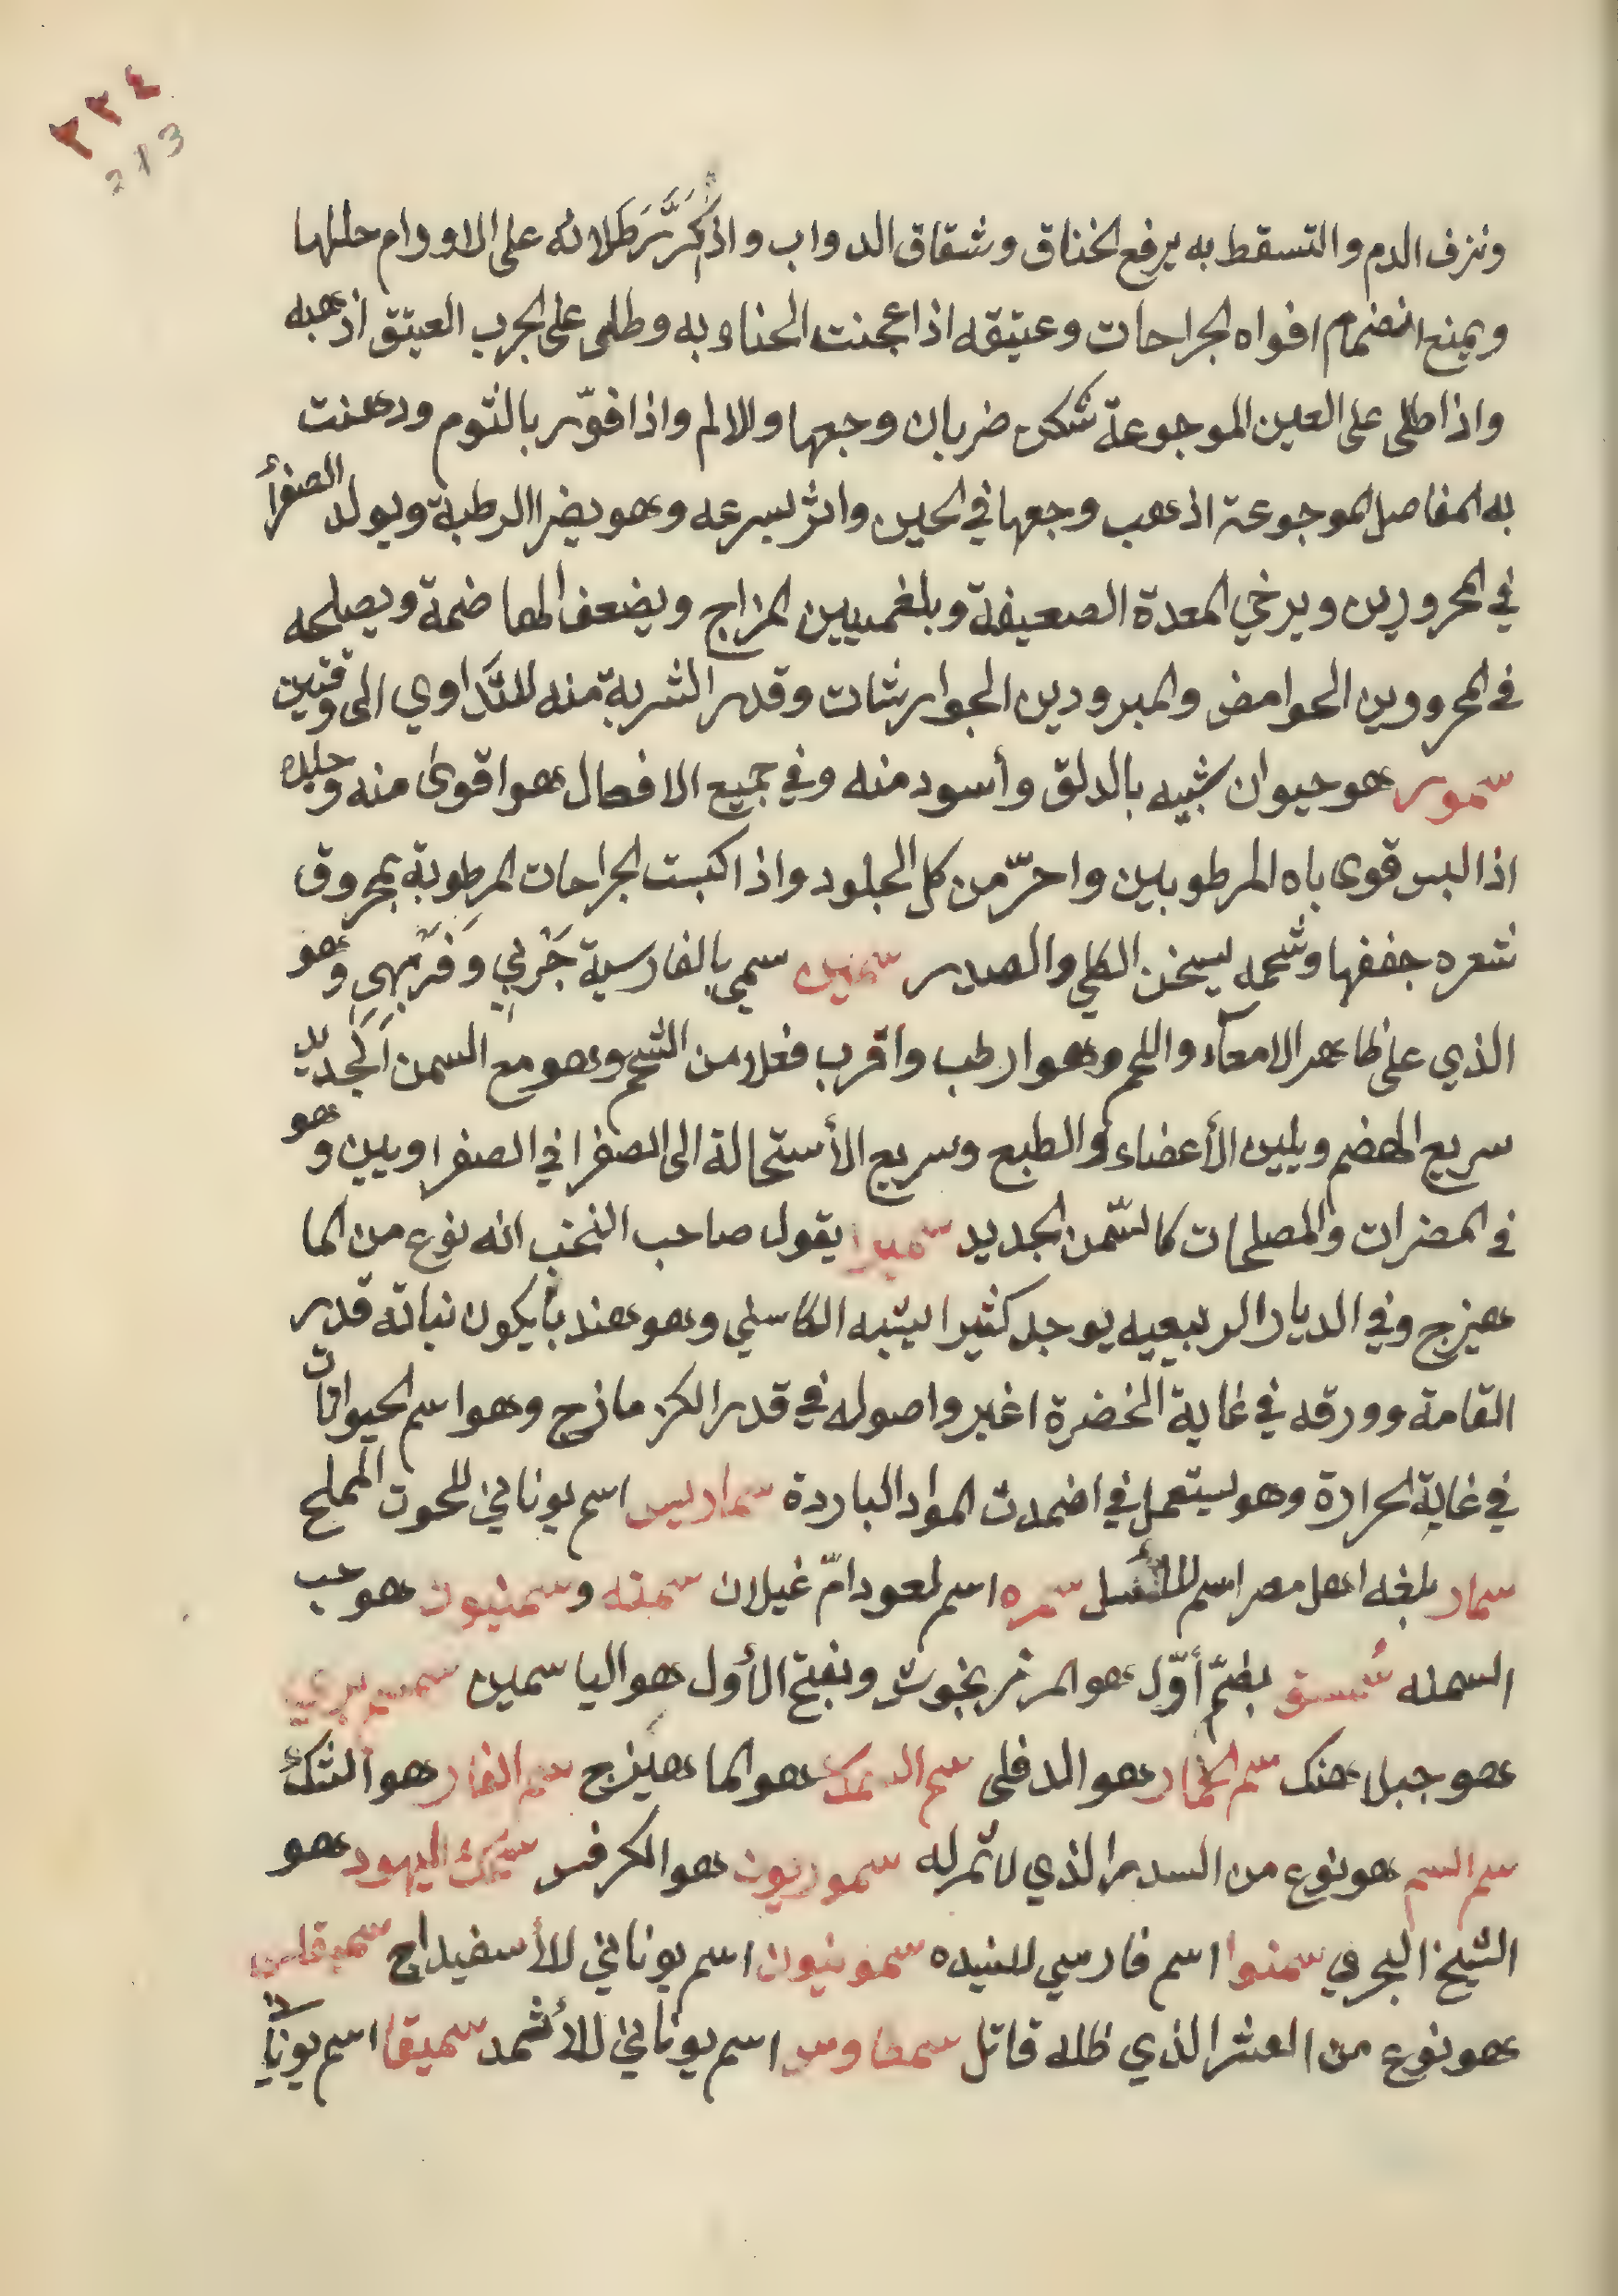 ٢٣٤
213
ونزف الدم والتسقط به يرفع الخناق وشقاق الدواب واذ كُرَّرَ طَلائه على الاورام حللها
ويمنع انضمام افواه الجراحات وعتيقه اذا عجنت الحناء به وطلى على الجرب العيتق اذهبه
واذا طلى على العين الموجوعة سُكن ضربان وجعها والالم واذا فوّر بالثوم ودهنت
به المفاصل الموجوعة اذهب وجعها في الحين واثر بسرعه وهو يضر الرطبة ويولد الصفرأ
في المحرورين ويرخي المعدة الضعيفة وبلغميين المزاج ويضعف الهاضمة ويصلحه
في المحرووين الحوامض والمبرودين الجوارشات وقدر الشربة منه للتّداوي الى وقتين
سمور هو حيوان شبيه بالدلق وأسود منه وفي جميع الافعال هو اقوى منه وجلده
اذا لبس قوى باه المرطوبين واحرّ من كل الجلود واذا كبست الجراحات المرطوبة بمحروق
شعره جففها وشحمه يسخن الكلي والصدر سمين سمي بالفارسية جَرْبيِ وَفَرْبِهي وهو
الذي على ظاهر الامعآء واللحم وهو ارطب واقرب فعلا من الشحم وهو مع السمن الجديد
سريع الهضم ويلين الأعضاء والطبع وسريع الأستحالة الى الصفرا في الصفراويين وهو
في المضرات والمصلحات كالسّمن الجديد سميرا يقول صاحب النخب انه نوع من الما
هيزج وفي الديار الربيعيه يوجد كثيرا يشبه الكاسني وهو هندبا يكون نباته قدر
القامة وورقه في غاية الخضرة اغبر واصوله في قدر الكزمازج وهو اسم الحيوانات
في غاية الحرارة وهو يستعمل في اضمدت المواد الباردة سماريس اسم يوناني للحوت المملح
سمار بلغه اهل مصر اسم للاسل سمره اسم لعود امّ غيلان سمنه وسمنيون هو حب
السمنه سُمسق بضمّ أوّل هو المرزنجوش وبفتح الأول هو الياسمين سمسم بري
هو جبلاهنك سم الحمار هو الدفلى سم السمك هو الماهيزج سم الفار هو الشك
سم السم هو نوع من السدر الذي لا ثمر له سموريون هو الكرفس سمك اليهود هو
الشيخ البحري سمنوا اسم فارسي للنيده سمونيون اسم يوناني للأسفيداج سميقلس
هو نوع من العشر الذي ظله قاتل سمطاوس اسم يوناني للأثمد سميقا اسم يوناني